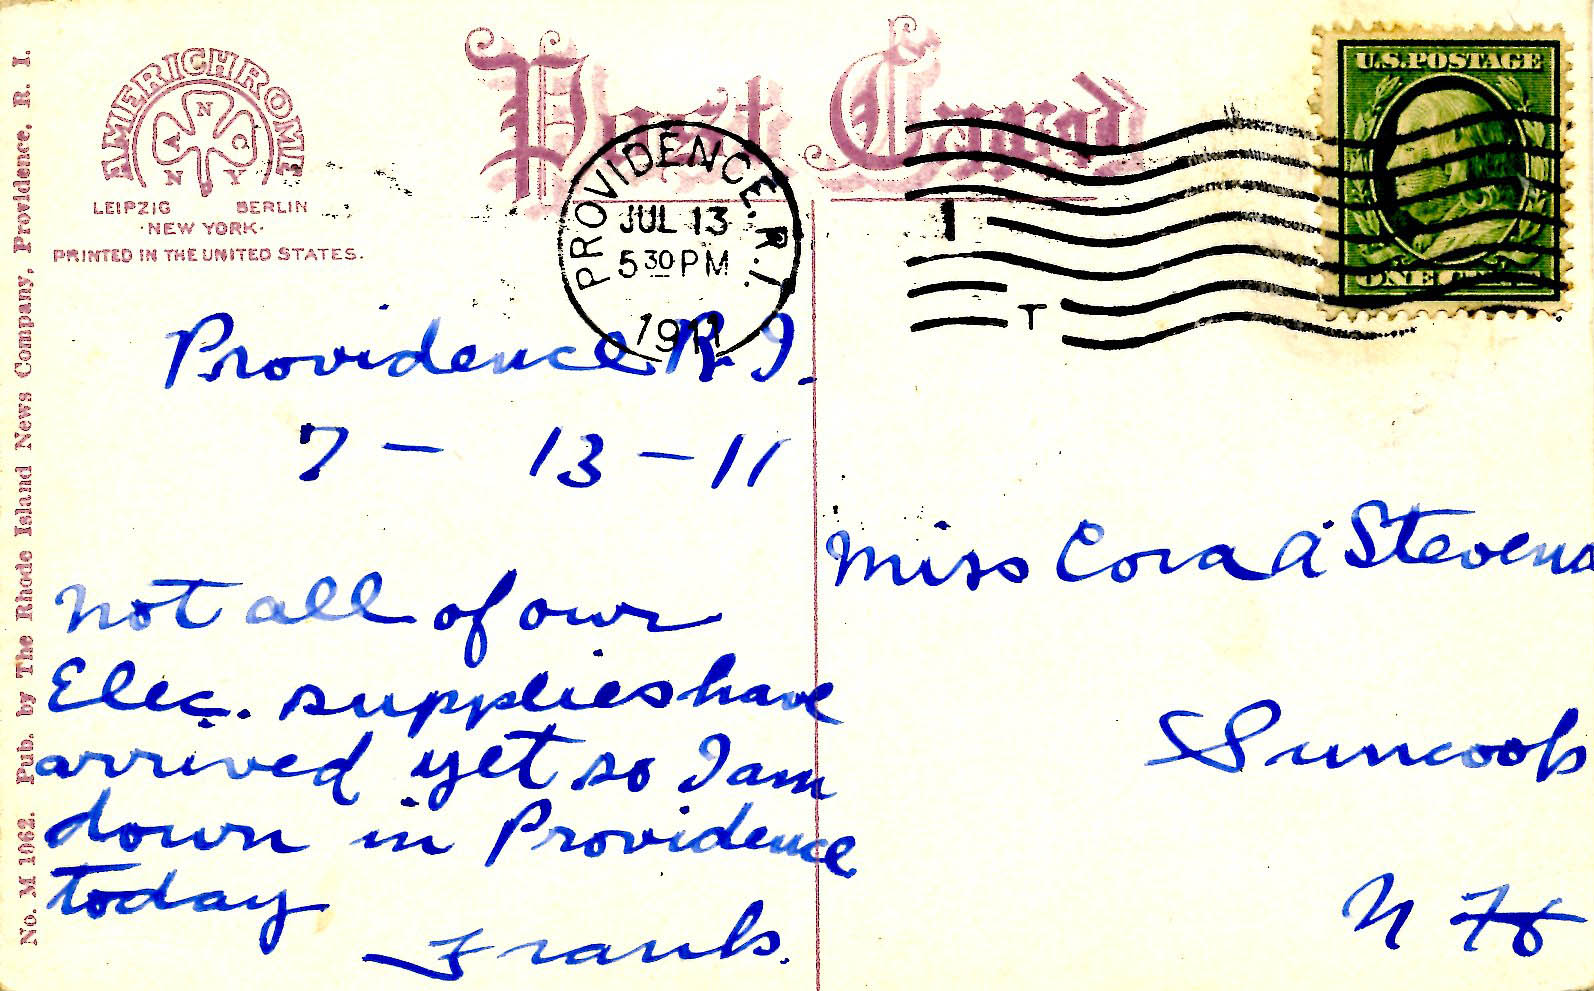 No. M 1962. Pub. by The Rhode Island News Company, Providence, R. I.
AMERICHROME
A N C
N Y
LEIPZIG BERLIN
·NEW YORK·
PRINTED IN THE UNITED STATES.
Post Card
PROVIDENCE, R.I.
JUL 13
5 30 PM
1911
1
T
U.S. POSTAGE
ONE CENT
Providence R. I.
7 - 13 - 11
Not all of our
Elec. supplies have
arrived yet so I am
down in Providence
today
Frank.
Miss Cora A Stevens
Suncook
N H